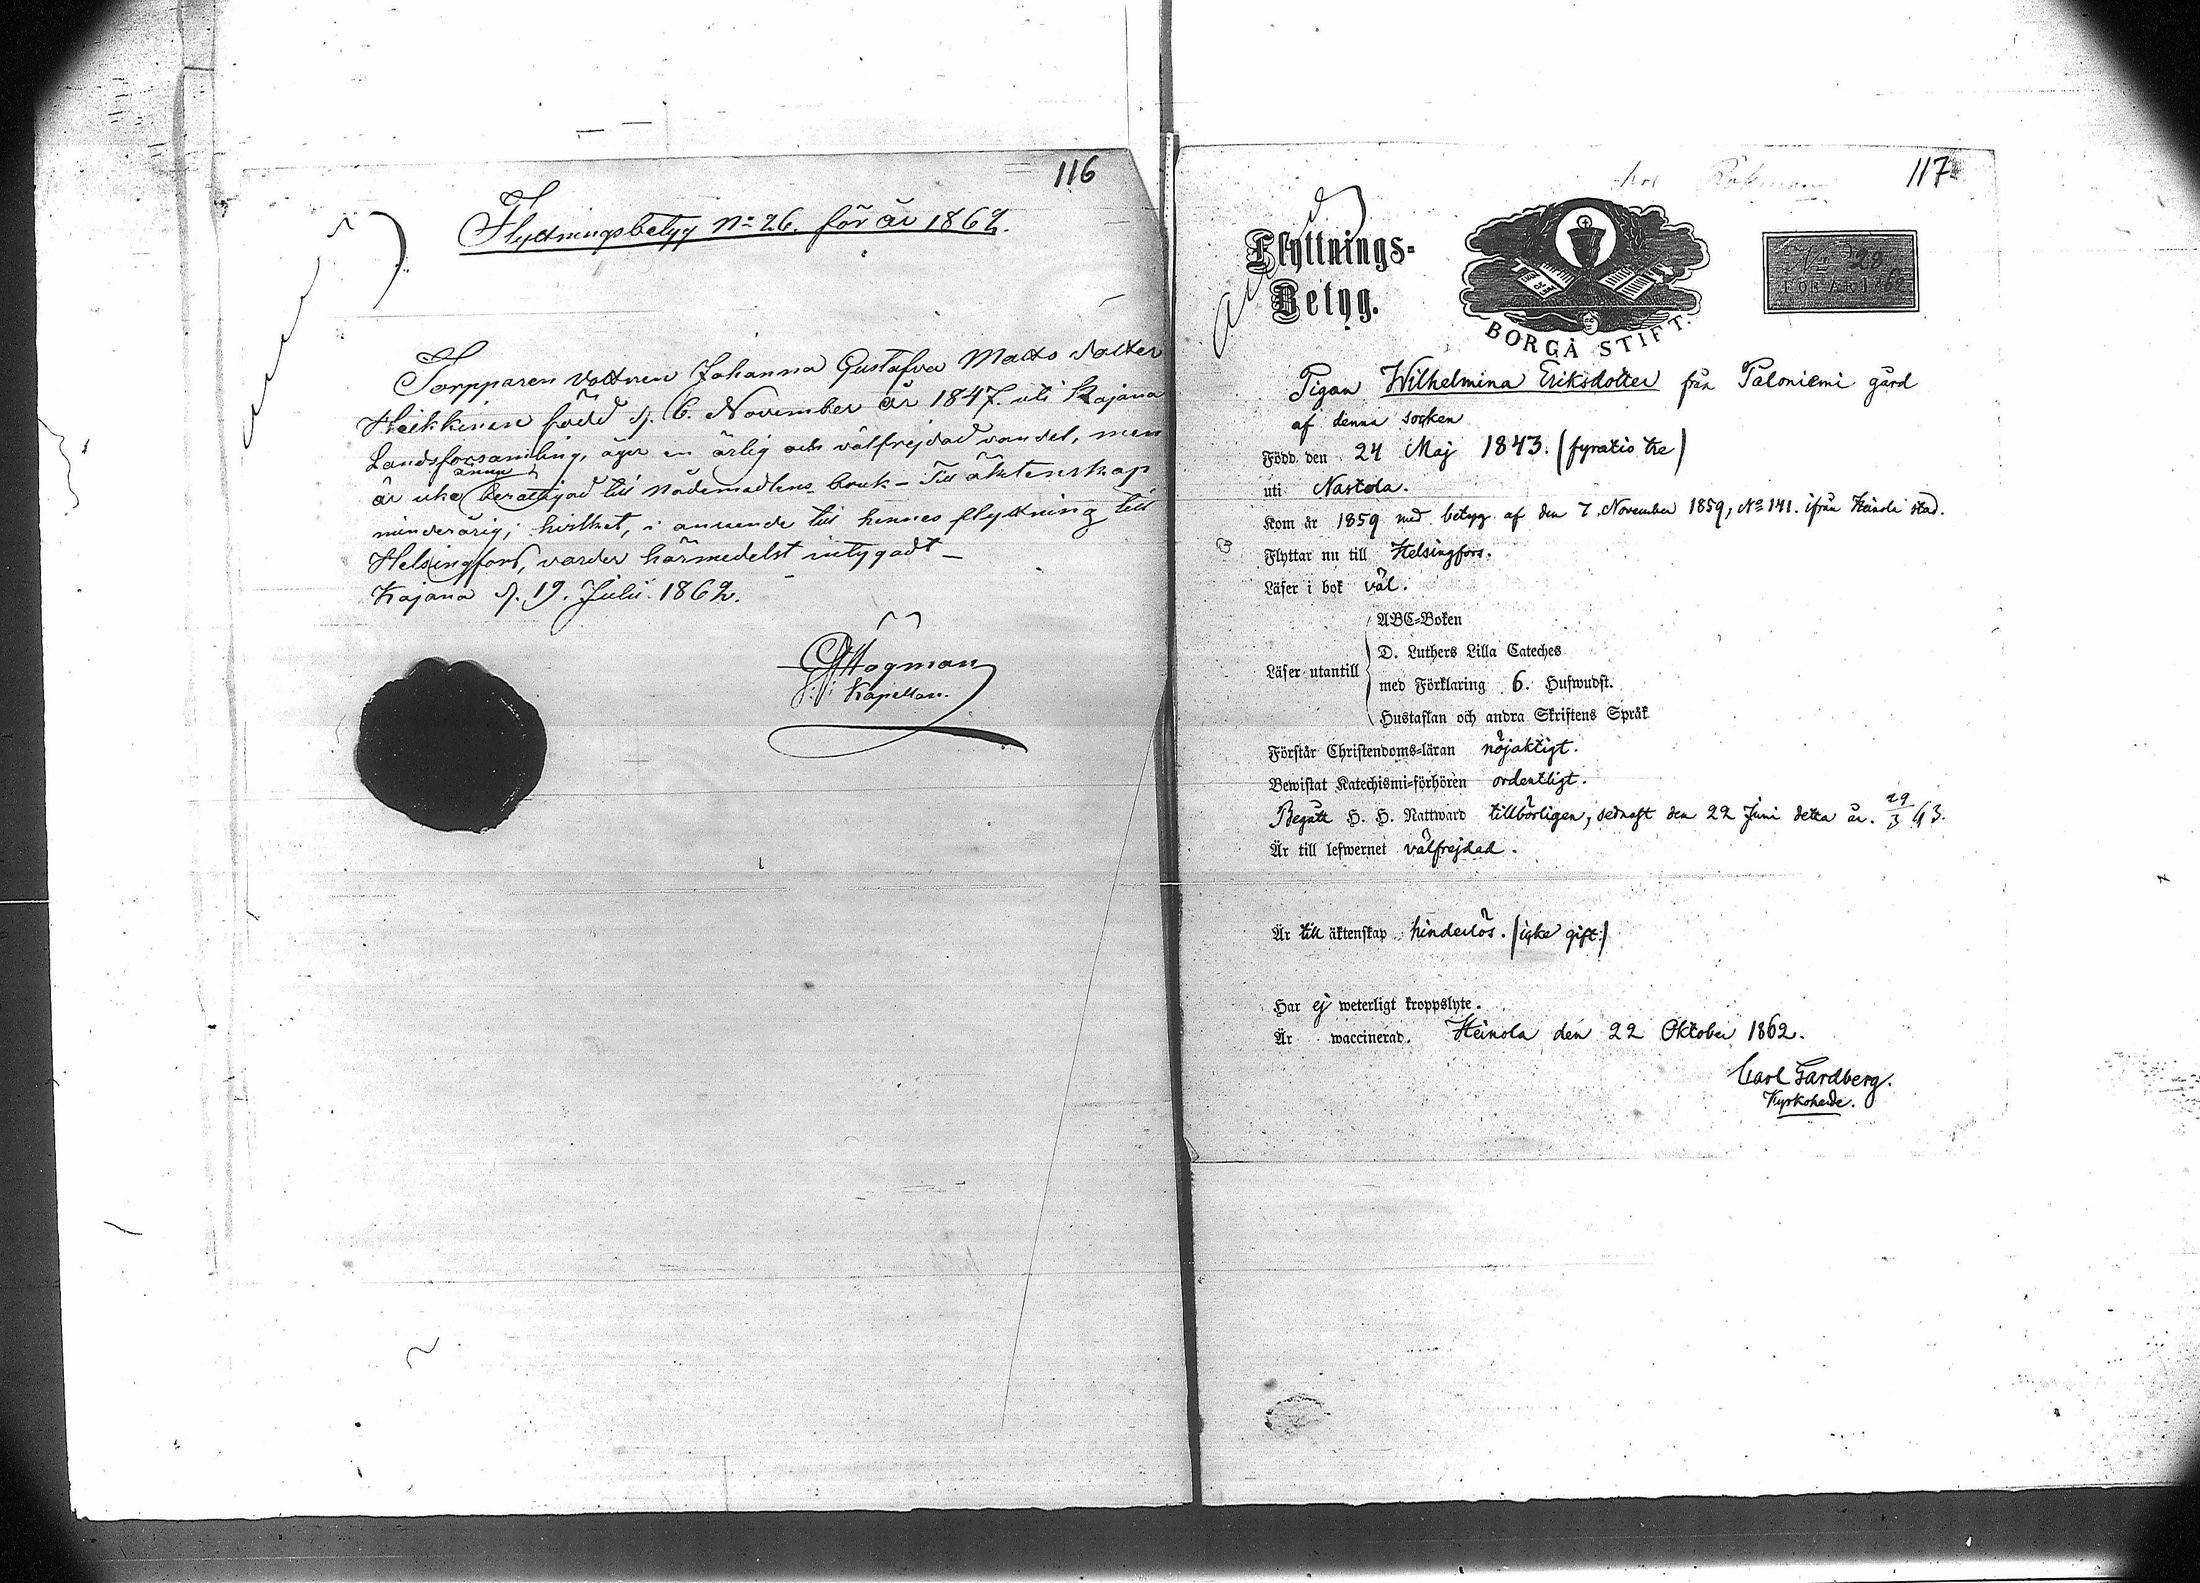 116
Flyttningsbetyg No 26. för år 1862.
Torpparen dottren Johanna Gustafva Matts dotter
Heikkinen född d. 6. November år 1847. uti Kajana
Landsförsamling, äger en ärlig och välfrejdad vandel, men
ännu
är icke berättigad till Nådemedlens bruk – Till äktenskap
minderårig; hvilket, i anseende till hennes flyttning till
Helsingfors, varder härmedelst intygadt –
Kajana d. 19. Julii 1862.
Hogman
Kapellan.
117
hos
Flyttnings-
Betyg.
BORGÅ STIFT.
No 28
FÖR ÅR 1862
Pigan Wilhelmina Eriksdotter från Paloniemi gård
af denna socken
Född den 24 Maj 1843. (fyratio tre)
uti Nastola.
Kom år 1859 med betyg af den 7 November 1859, No 141. ifrån Heinola stad.
Flyttar nu till Helsingfors.
Läser i bok väl.
ABC-Boken
D. Luthers Lilla Cateches
Läser utantill
med Förklaring 6. Hufwudst.
Hustaflan och andra Skriftens Språk
Förstår Christendoms-läran nöjaktigt.
Bewistat Katechismi-förhören ordentligt.
Begått H. H. Nattward tillbörligen, sednast den 22 Juni detta år. 29/3 63.
Är till lefwernet välfrejdad.
Är till äktenskap hinderlös. (icke gift.)
Har ej weterligt kroppslyte.
Är waccinerad. Heinola den 22 Oktober 1862.
Carl Gardberg.
Kyrkoherde.